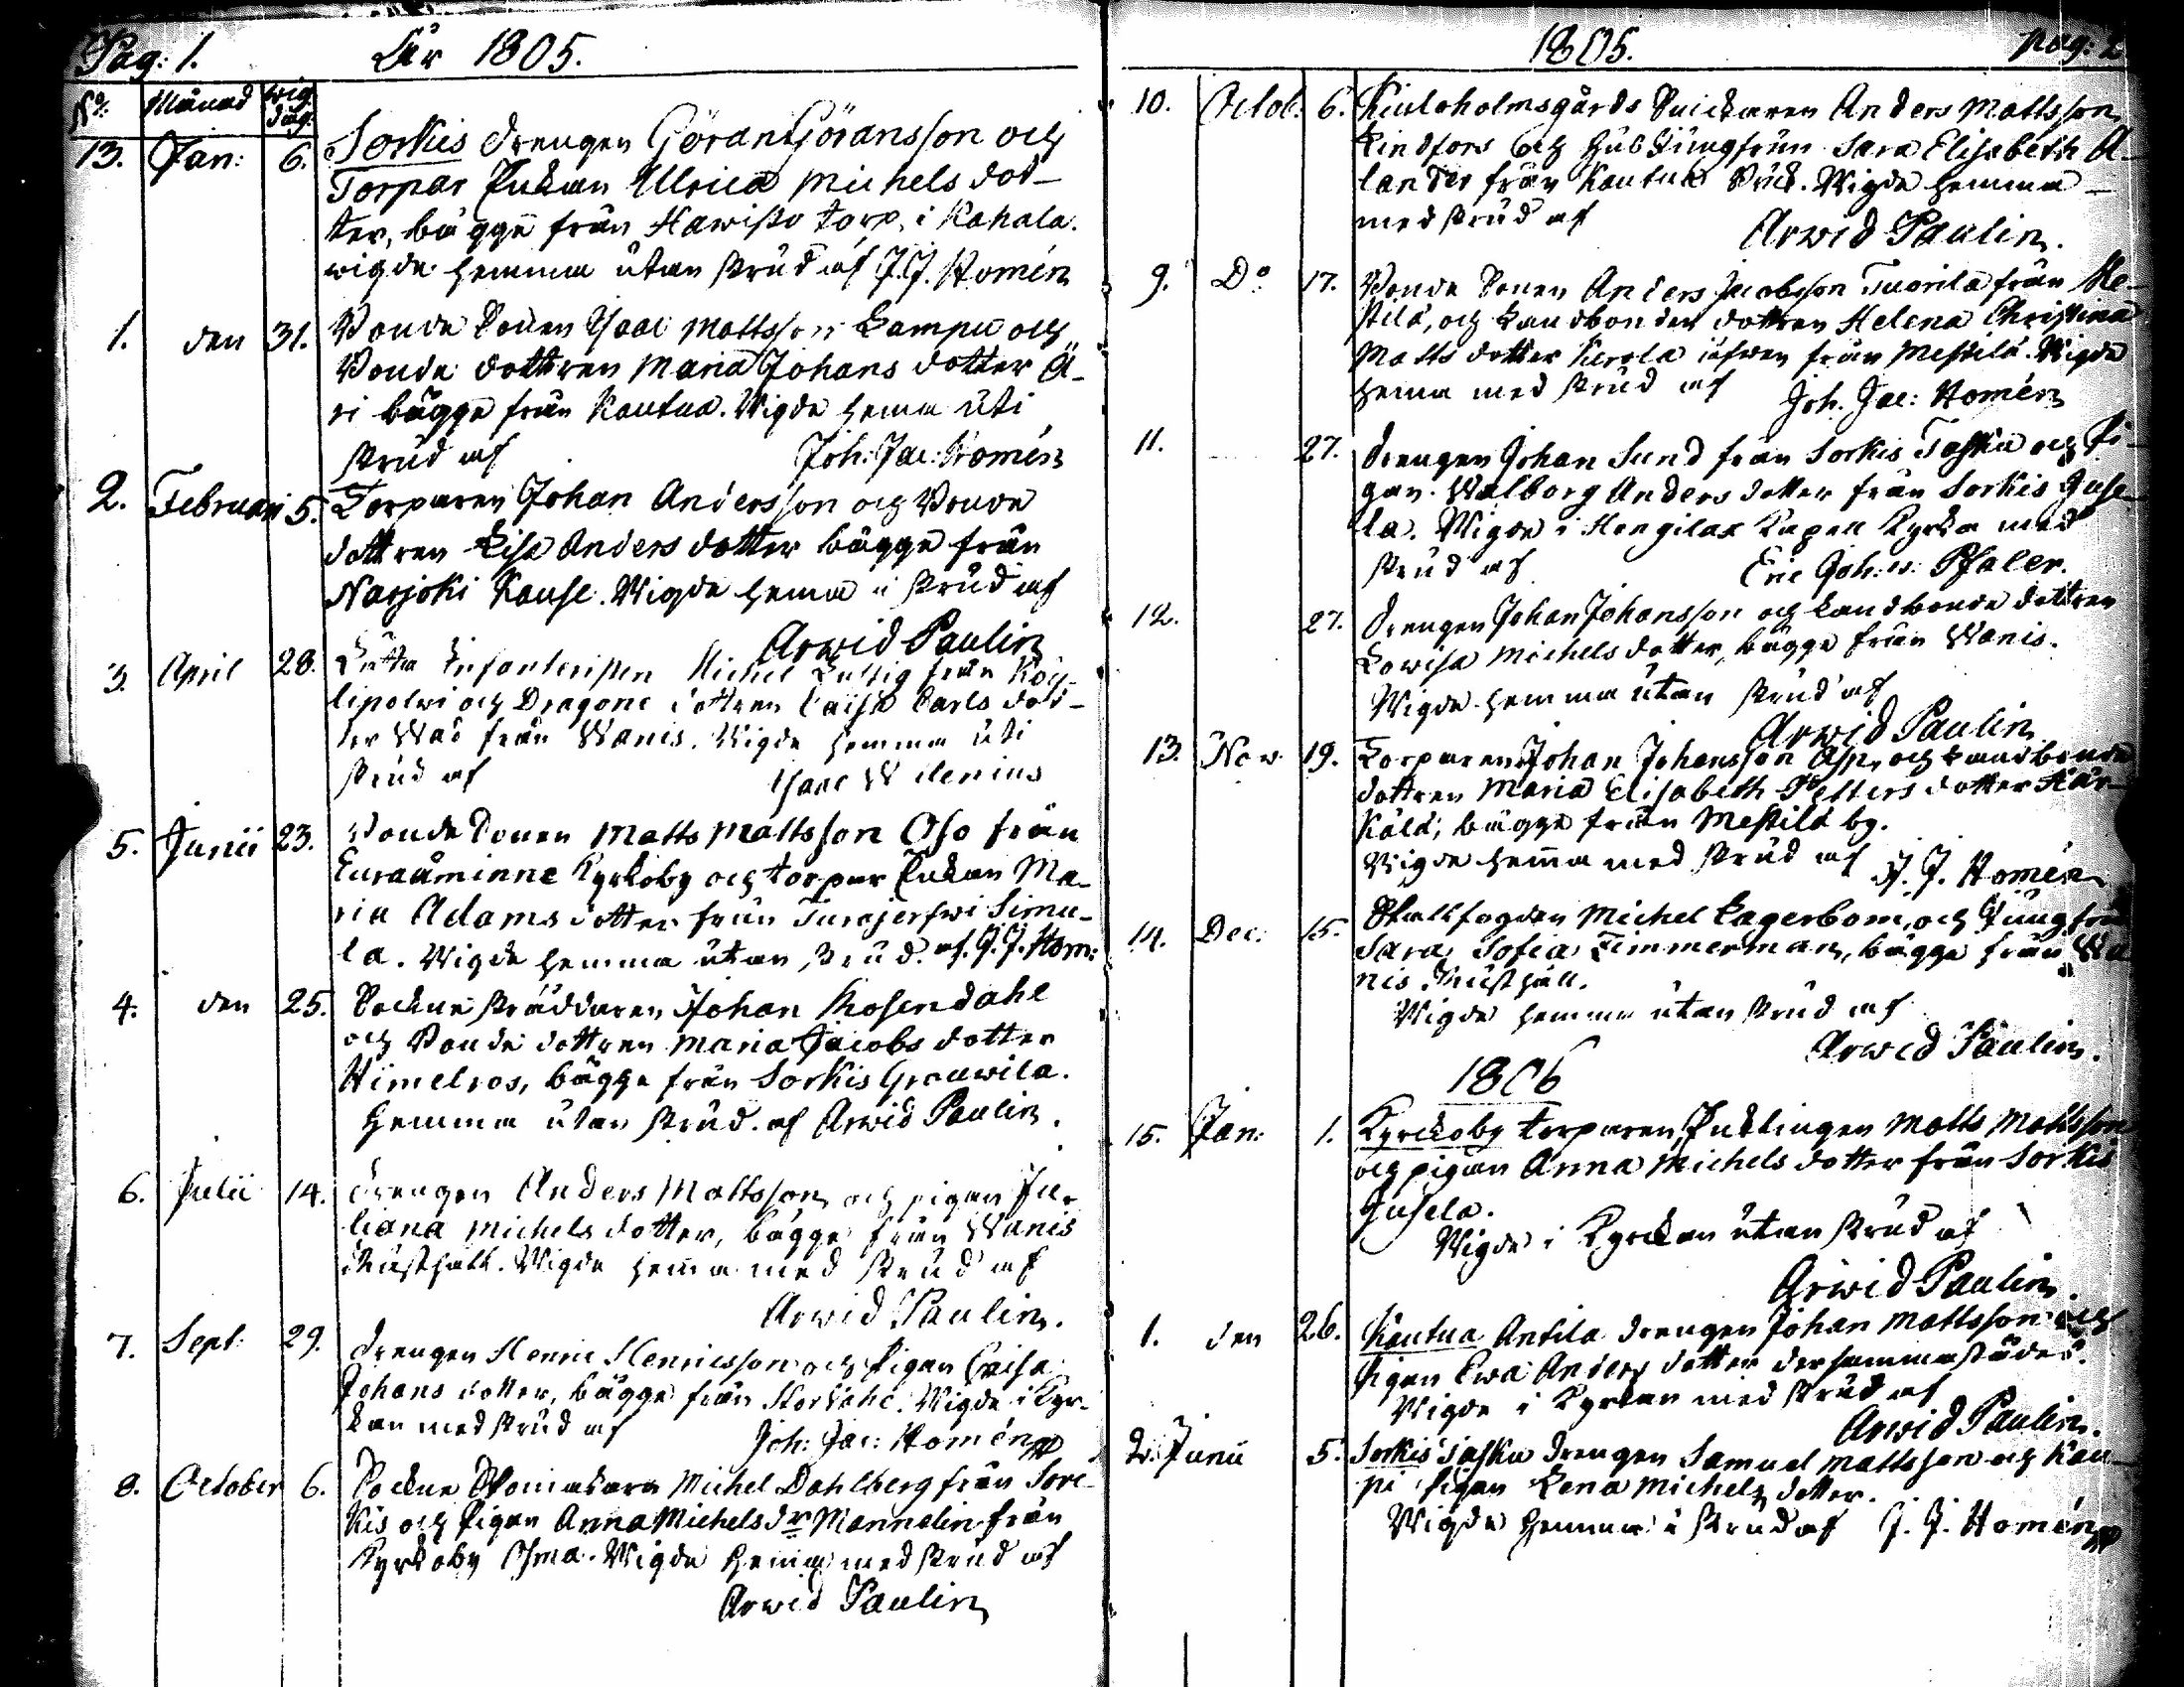 Pag: 1. Åår 1805.
No. Månad wig. dag.
13. Jan: 6. Sorkis drengen Göran Göransson och
Torpar Enkan Ulrica Michels dot-
ter, bägge från Hawisto torp, i Kahala.
wigde hemma utan skrud af J.J. Homén
1. den 31. Bonde Sonen Isaac Mattsson Lampu och
Bonde dottren Maria Johans dotter Ä-
ri bägge från Kautua. Wigde hema uti
skrud af Joh: Jac: Homén
2. Februari 5. Torparen Johan Andersson och Bonde
dottren Lisa Anders dotter bägge från
Narjoki Kause. Wigde hema i skrud af
Arwid Paulin
3. April 28. Lätta Infanteristen Michel Luttig från Köy-
lipolwi och Dragone dottren Caisa Carls dot-
ter Wad från Wanis. Wigde hemma uti
skrud af Isaac Wilenius
5. Junii 23. Bonde Sonen Matts Mattsson Oso från
Euraåminne Kyrkoby och torpar Enkan Ma-
ria Adams dotter från Turajerfwi Simu-
la. Wigde hemma utan skrud. af J.J. Hom:
4. den 25. Sockne skräddaren Johan Rosendahl
och Bonde dottren Maria Jacobs dotter
Himelros, bägge från Sorkis Grouwila.
hemma utan skrud. af Arwid Paulin.
6. Julii 14. Drengen Anders Mattsson och pigan Ju-
liana Michels dotter, bägge från Wanis
Rusthåll. Wigde hema med skrud af
Arwid Paulin.
7. Sept: 29. Drengen Henric Henricsson och Pigan Caisa
Johans dotter, bägge från . Wigde i Kyr-
kan med skrud af Joh: Jac: Homén
8. October 6. Sockne Skomakarn Michel Dahlberg från Sor-
kis och Pigan Anna Michels dr Mannelin från
Kyrkoby . Wigde hema med skrud af
Arwid Paulin
1805. pag: 2
10. Octob. 6. Kiuloholmsgårds Snickaren Anders Mattsson
Lindfors och Jungfrun Sara Elisabeth A-
lander från Kautua Bruk. Wigde hemma
med skrud af Arwid Paulin.
9. Do 17. Bonde Sonen Anders Jacobsson Tuorila från Me-
stilä, och Landbonden dottren Helena Christina
Matts dotter Kerola äfwen från Mestilä. Wigde
hema med skrud af Joh. Jac: Homén
11. 27. Drengen Johan Sund från Sorkis Taska och Pi-
gan Walborg Anders dotter från Sorkis Juse-
la. Wigde i Hongilax Kapell Kyrka med
skrud af Eric Joh: Pfaler.
12. 27. Drengen Johan Johansson och Landbonde dottren
Lowisa Michels dotter, bägge från Wanis.
Wigde hemma utan skrud af
Arwid Paulin
13. Nov. 19. Torparen Johan Johansson Asp, och Landbonde
dottren Maria Elisabeth Petters dotter Här-
kälä, bägge från Mestilä by.
Wigde hema med skrud af J. J. Homén
14. Dec: 15. Stallfogden Michel Lagerbom, och Jungfrun
Sara Sofia Timmerman, bägge från Wa
nis Rusthåll.
Wigde hemma utan skrud af
Arwid Paulin.
1806
15. Jan: 1. Kyrckoby torparen, Enklingen Matts Mattsson
och pigan Anna Michels dotter från Sorkis
Jusela.
Wigde i Kyrckan utan skrud af
Arwid Paulin
1. den 26. Kautua Antila drengen Johan Mattsson och
Pigan Ewa Anders dotter dersammastädes.
Wigde i Kyrkan med skrud af
Arwid Paulin.
2. Junii 5. Sorkis Taska drengen Samuel Mattsson och Kau-
pi Pigan Lena Michels dotter.
Wigde hemma i skrud af J. J. Homén